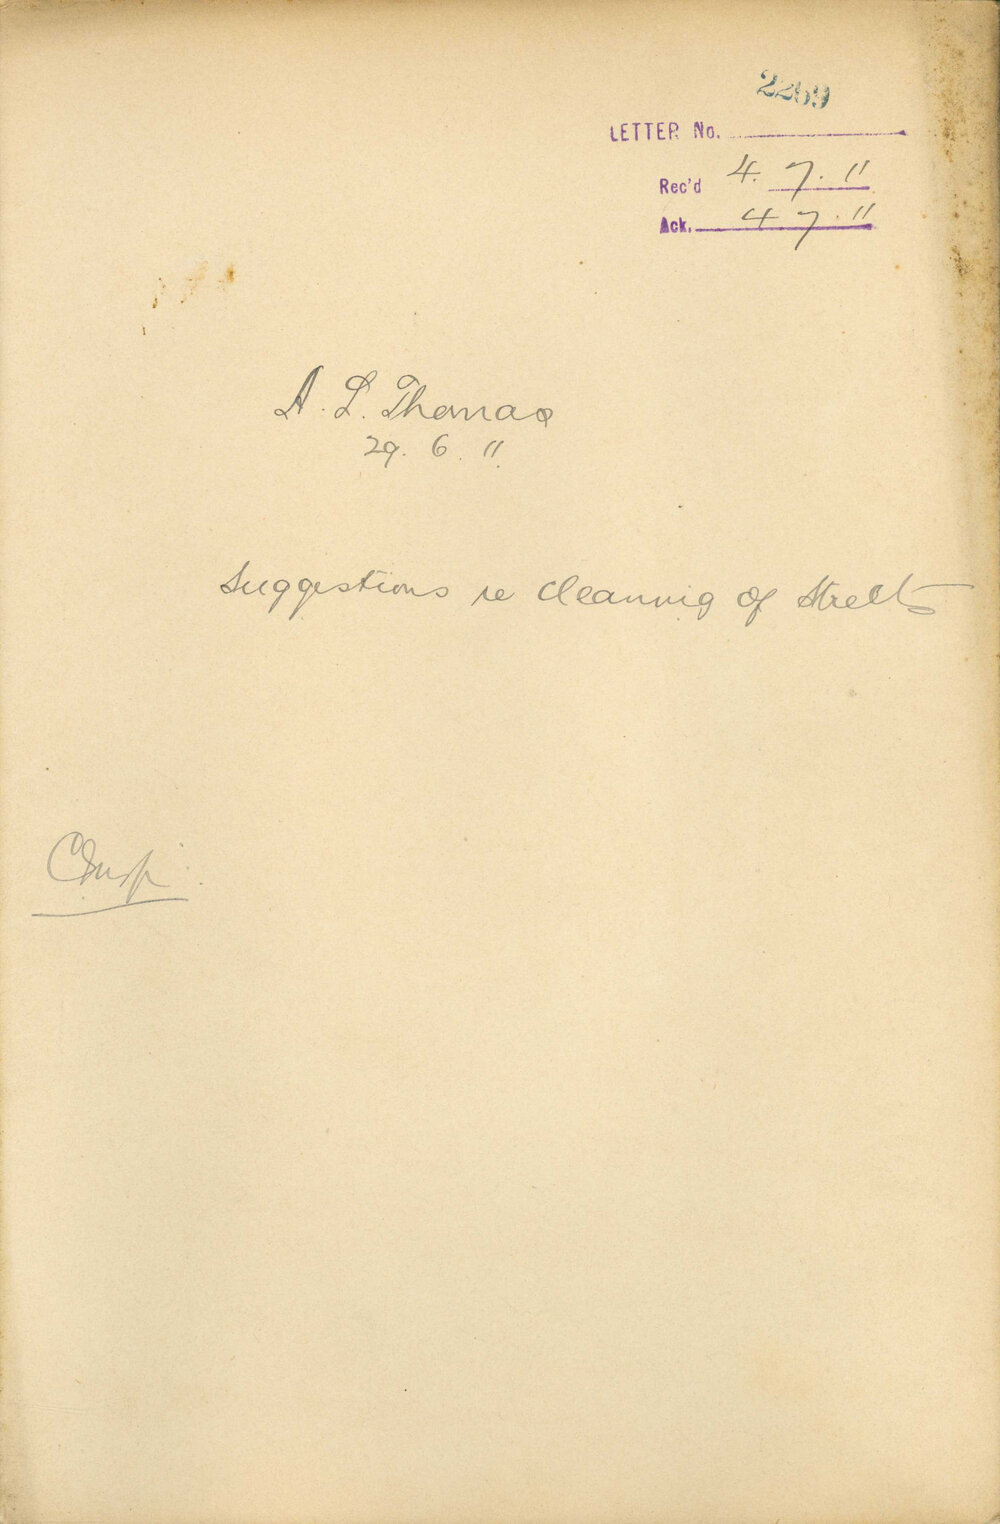 2269
LETTER No.
Rec'd 4. 7. 11
Ack. 4 7. 11
A. L. Thomas
29. 6. 11
Suggestions re Cleaning of Streets